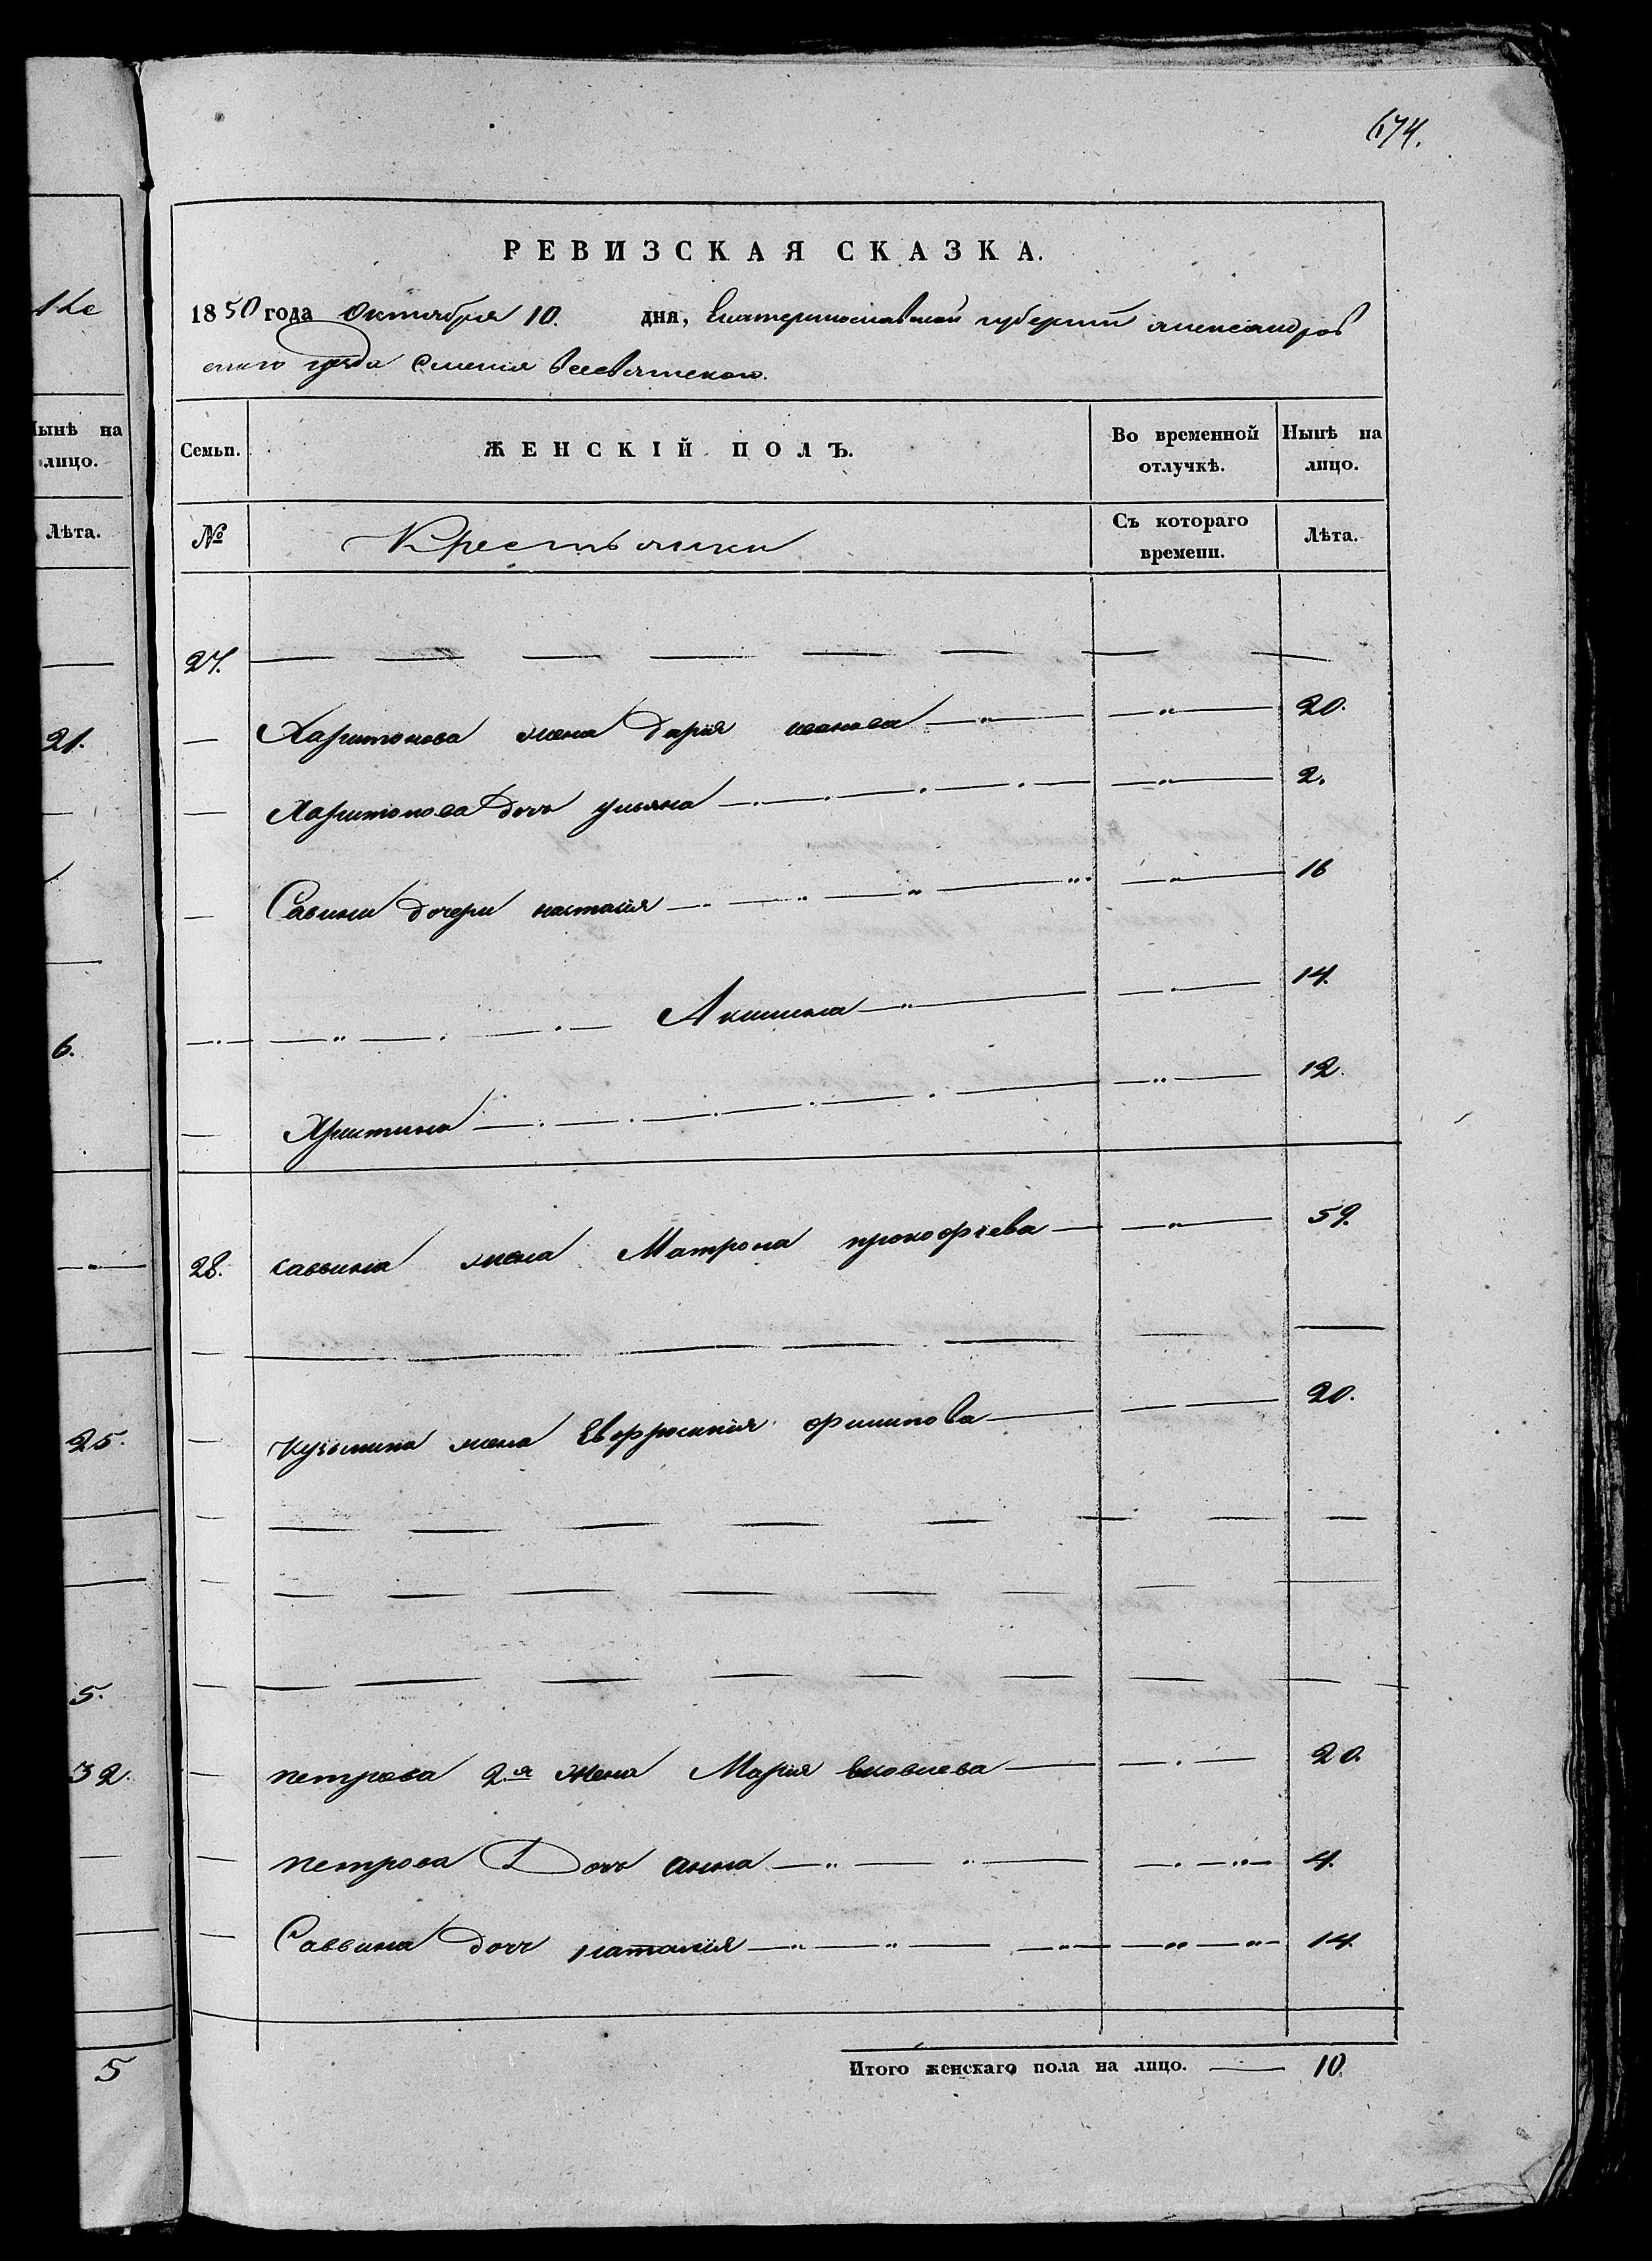 674.
1 Le
Нынѣ на
лицо.
Лѣта.
21.
6.
25.
5.
32.
5
РЕВИЗСКАЯ СКАЗКА.
1850 года Октября 10. дня, Екатеринославской губернии александров
скаго уезда Имения Всесвятскаго.
Семьи. ЖЕНСКІЙ ПОЛЪ. Во временной отлучкѣ. Нынѣ на лицо.
№ Крестьянки Съ котораго времени. Лѣта.
27. — — — — — — — —
— Харитонова жена Дария иванова — " — — " — 20.
— Харитонова Дочь ульяна — — " — 2.
— Савины дочери настасия — — " — 16
— Акилина — " — — 14.
— Христина — — " — 12.
28. саввина жена Матрона прокофiева — — " — 59.
— — — — — — —
— Кузьмина жена Евфросиния филипова — — — 20.
— — — — — — — — —
— — — — — — — — —
— — — — — — — — —
— петрова 2я жена Мария яковлева — — . — 20.
— петрова Дочь анна — " — — . — " — 4.
— Саввина дочь наталия — " — " — — " — " — 14.
Итого женскаго пола на лицо. — 10.